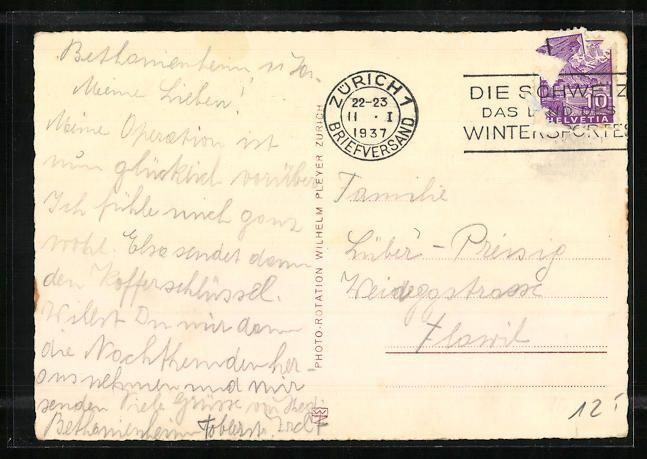 Bethanienheim,
Meine Lieben!
Meine Operation ist
nun glücklich vorüber
Ich fühle mich ganz
wohl. Else sendet dann
den Kofferschlüssel.
Willst Du mir dann
die Nachthemden her-
ausnehmen und mir
senden Viele Grüsse von
Bethanienheim Toblerstr.
PHOTO-ROTATION WILHELM PLEYER ZÜRICH
ZÜRICH 1
22-23
11 · I
1937
BRIEFVERSAND
DIE SCHWEIZ
DAS LAND DES
WINTERSPORTES
10
HELVETIA
Familie
Lüber-Preisig
Weideggstrasse
Flawil
12